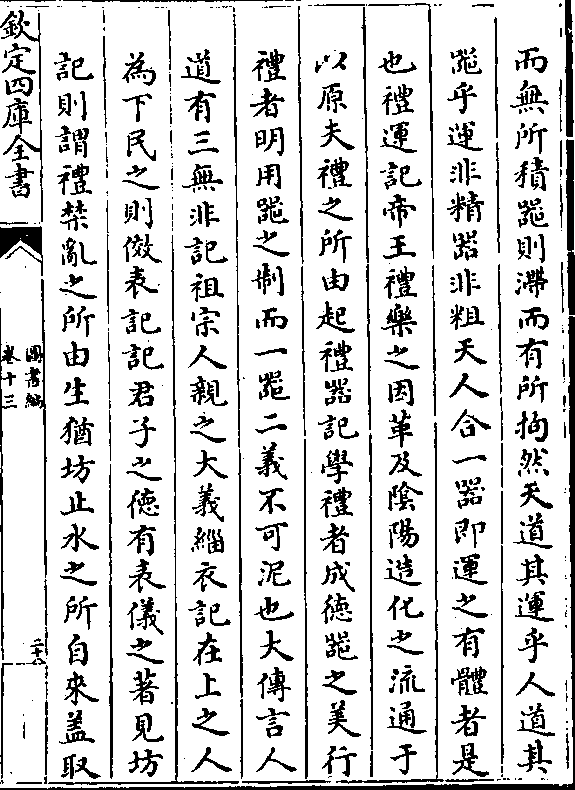 而無所積噐則滯而有所拘然天道其運乎人道其
噐乎運非精器非粗天人合一器即運之有體者是
也禮運記帝王禮樂之因革及陰陽造化之流通于
以原夫禮之所由起禮器記學禮者成德噐之美行
禮者明用噐之制而一噐二義不可泥也大傳言人
道有三無非記祖宗人親之大義緇衣記在上之人
為下民之則倣表記記君子之徳有表儀之著見坊
記則謂禮禁亂之所由生猶坊止水之所自來葢取
欽定四庫全書
圖書編
卷十三
二十八